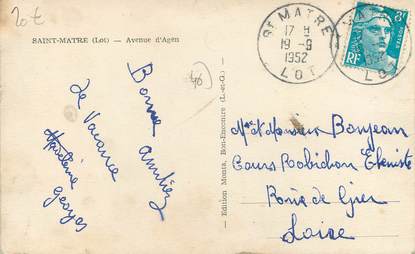 20t
SAINT-MATRE (Lot) — Avenue d'Agen
46
Bonne amitiée
de Vacance
Madeleine
Georges
Edition Monta, Bon-Encontre (L.-et-G.)
ST MATRE
17 H
19 - 9
1952
LOT
LOT
8F
RF
Mme et Monsieur Bonjean
Cours Robichon Ebéniste
Rive de Gier
Loire